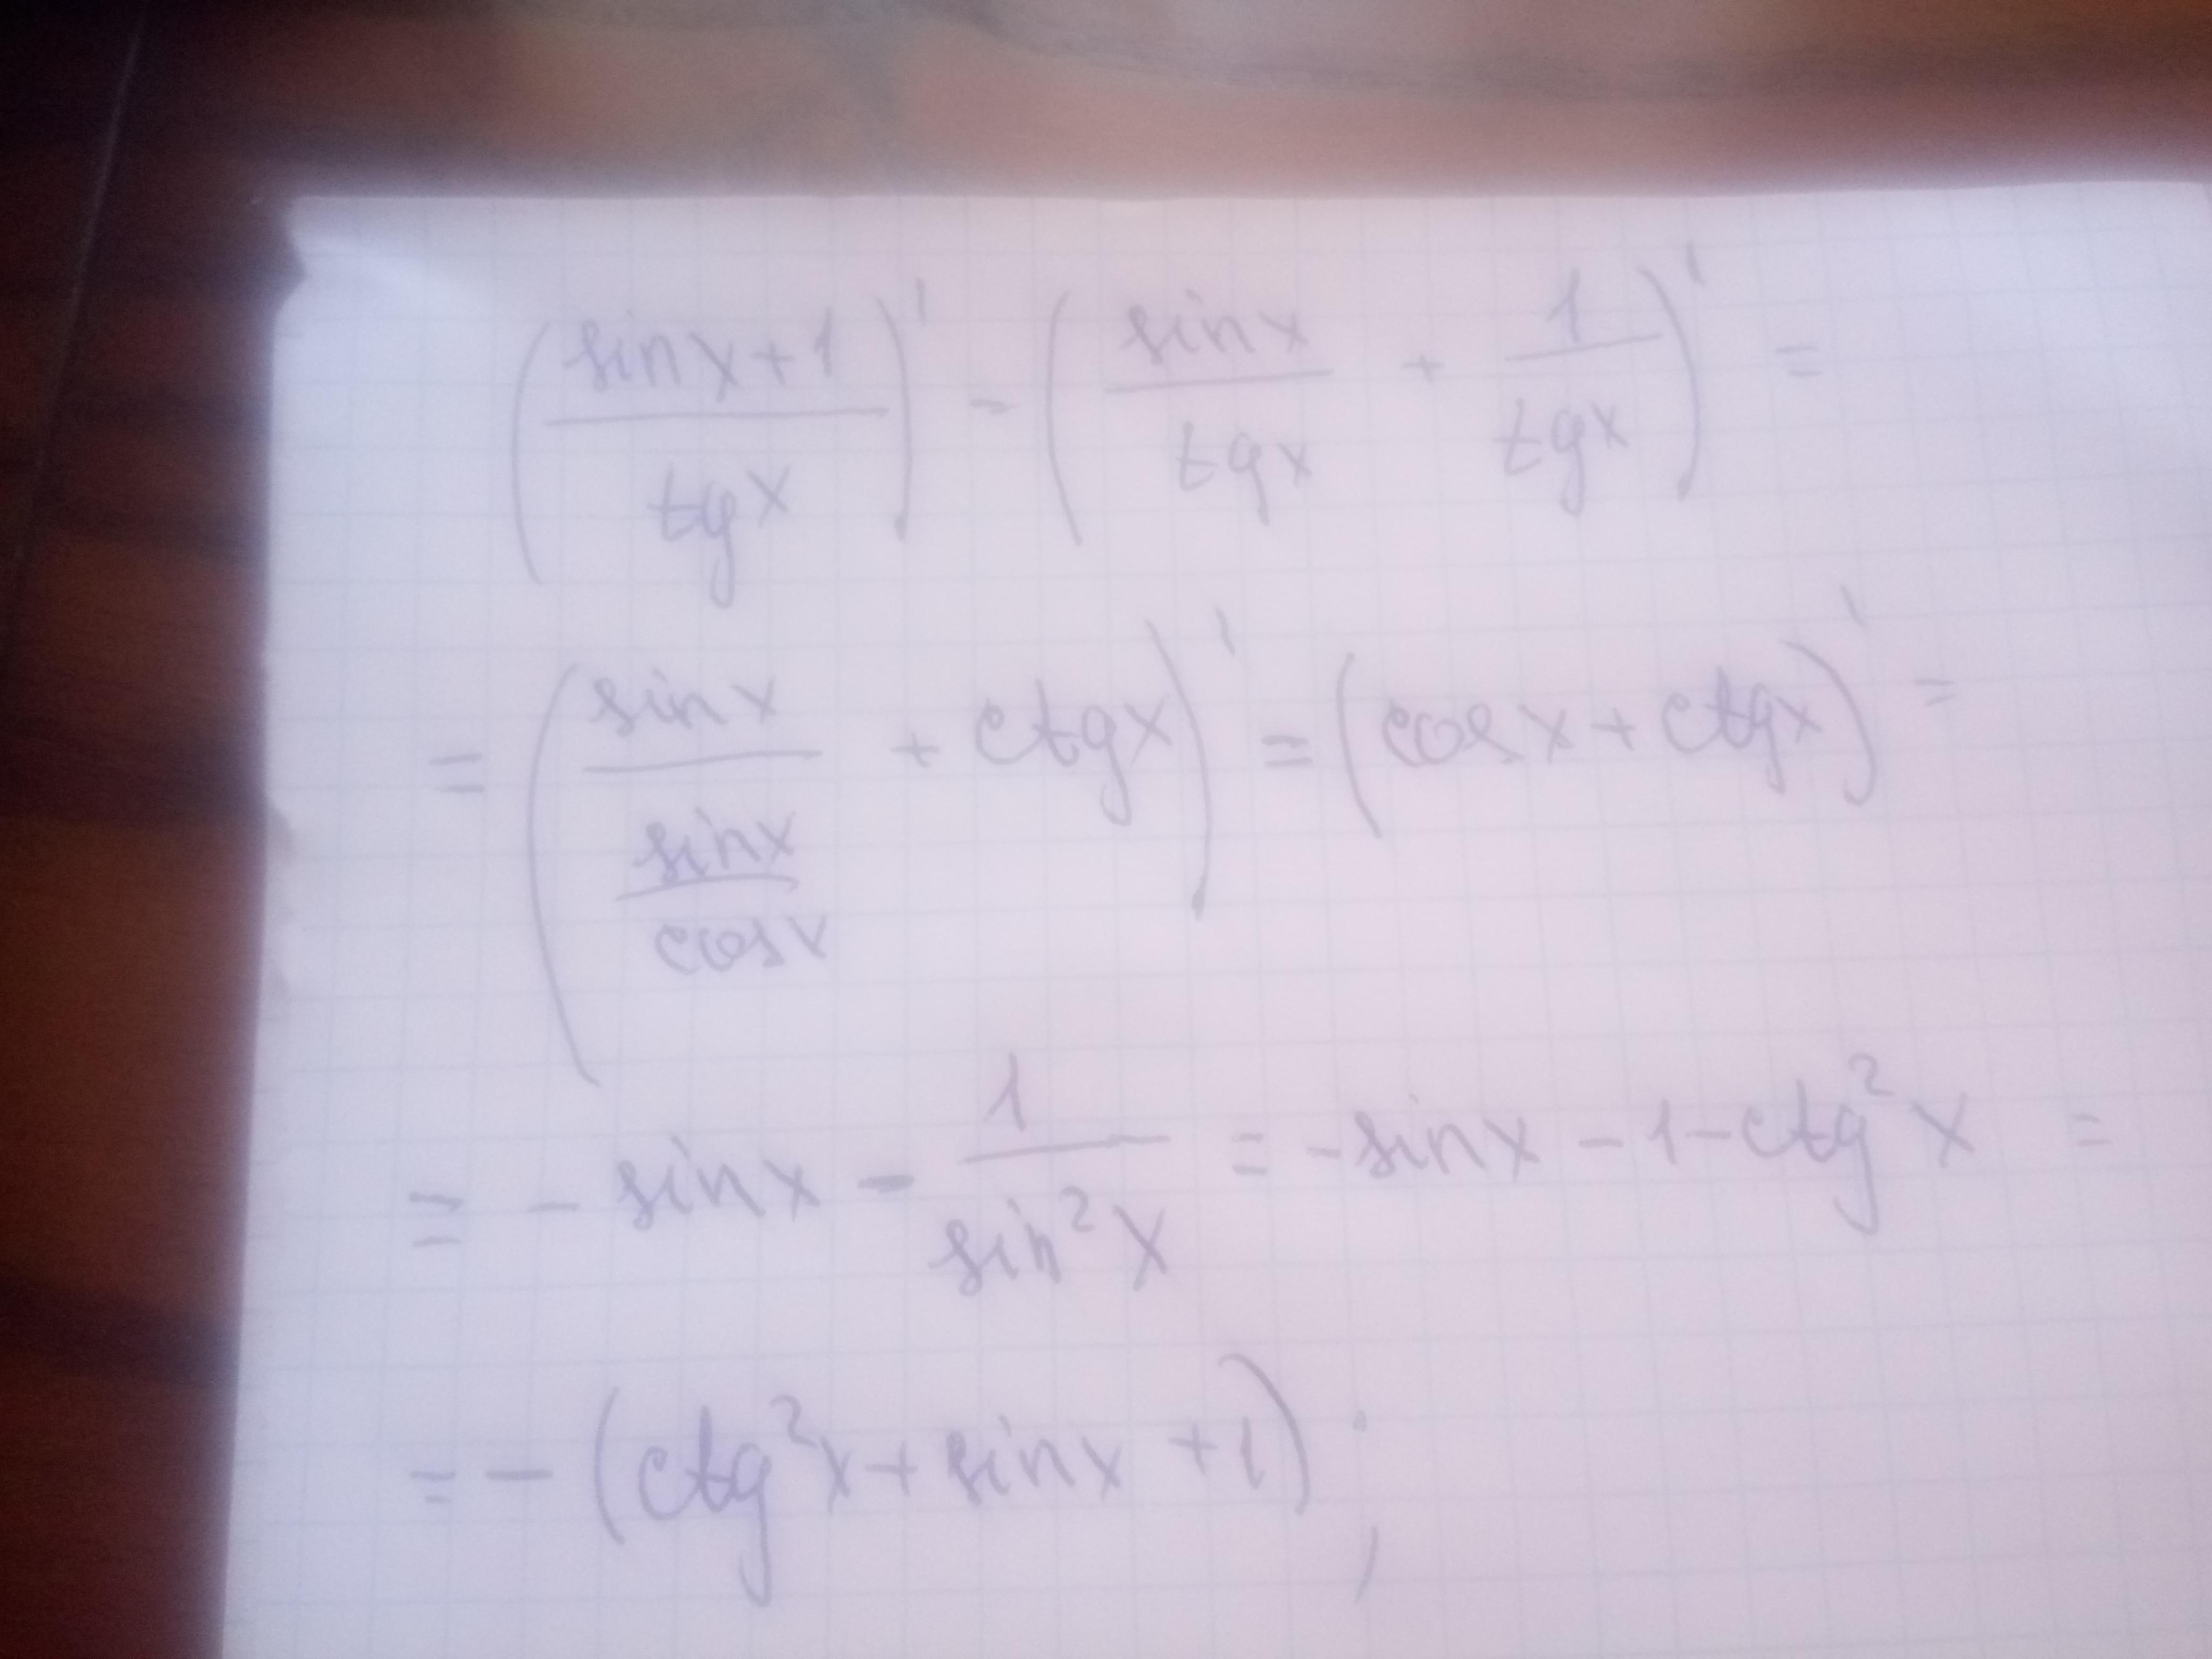 (sinx+1/tgx)' - (sinx/tgx + 1/tgx)' =
= (sinx/(sinx/cosx) + ctgx)' = (cosx + ctgx)' =
= - sinx - 1/sin²x = -sinx - 1 - ctg²x =
= - (ctg²x + sinx + 1);